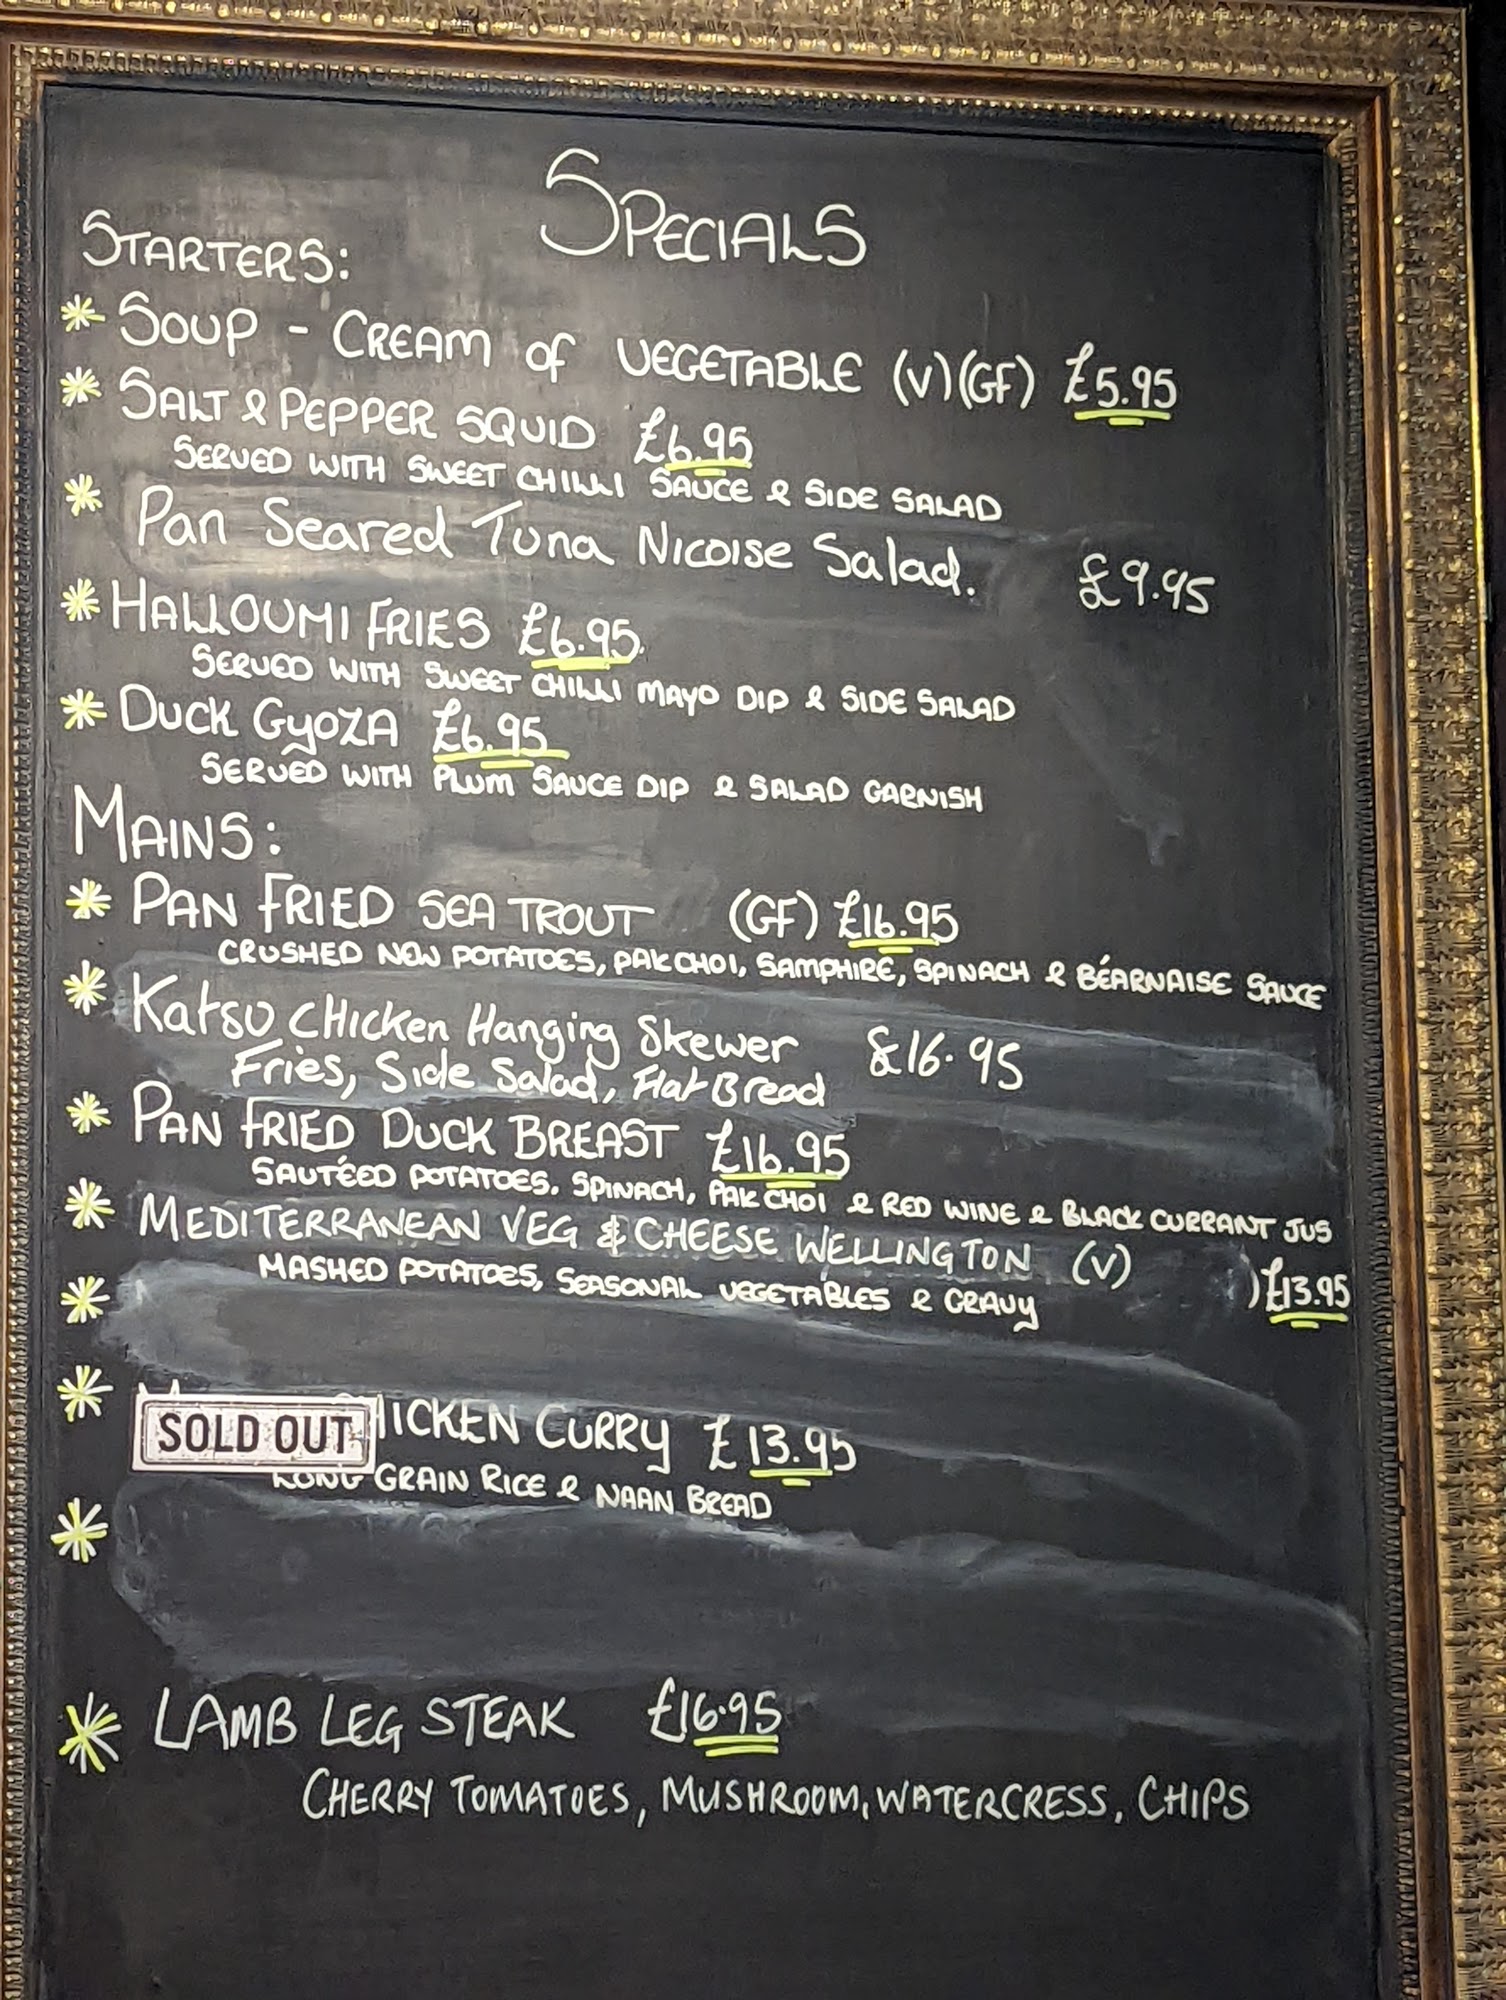 SPECIALS
STARTERS:
* SOUP - CREAM OF VEGETABLE (V)(GF) £5.95
* SALT & PEPPER SQUID £6.95
SERVED WITH SWEET CHILLI SAUCE & SIDE SALAD
* Pan Seared Tuna Nicoise Salad. £9.95
* HALLOUMI FRIES £6.95
SERVED WITH SWEET CHILLI MAYO DIP & SIDE SALAD
* DUCK GYOZA £6.95
SERVED WITH PLUM SAUCE DIP & SALAD GARNISH
MAINS:
* PAN FRIED SEA TROUT (GF) £16.95
CRUSHED NEW POTATOES, PAK CHOI, SAMPHIRE, SPINACH & BÉARNAISE SAUCE
* Katsu Chicken Hanging Skewer £16.95
Fries, Side Salad, Flat Bread
* PAN FRIED DUCK BREAST £16.95
SAUTÉED POTATOES, SPINACH, PAK CHOI & RED WINE & BLACK CURRANT JUS
* MEDITERRANEAN VEG & CHEESE WELLINGTON (V) £13.95
MASHED POTATOES, SEASONAL VEGETABLES & GRAVY
*
* SOLD OUT HICKEN CURRY £13.95
LONG GRAIN RICE & NAAN BREAD
*
* LAMB LEG STEAK £16.95
CHERRY TOMATOES, MUSHROOM, WATERCRESS, CHIPS